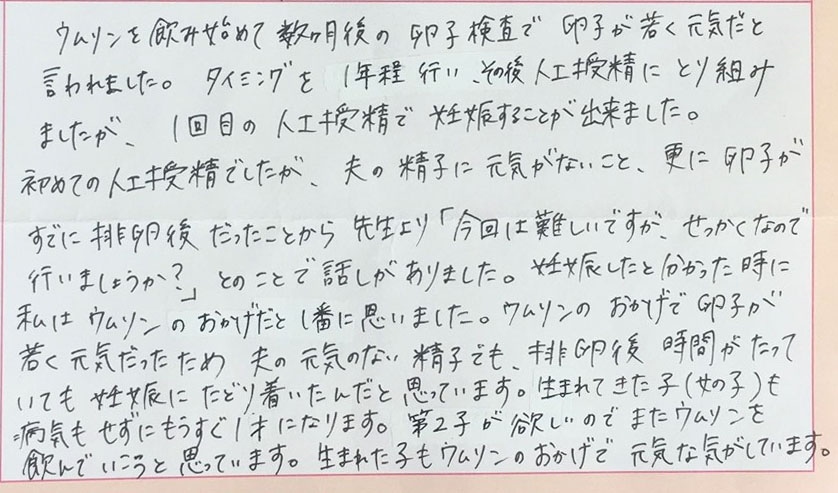 ウムリンを飲み始めて数ヶ月後の卵子検査で卵子が若く元気だと
言われました。タイミングを1年程行い、その後人工授精にとり組み
ましたが、1回目の人工授精で妊娠することが出来ました。
初めての人工授精でしたが、夫の精子に元気がないこと、更に卵子が
すでに排卵後だったことから先生より「今回は難しいですが、せっかくなので
行いましょうか?」とのことで話しがありました。妊娠したと分かった時に
私はウムリンのおかげだと1番に思いました。ウムリンのおかげで卵子が
若く元気だったため夫の元気のない精子でも、排卵後時間がたって
いても妊娠にたどり着いたんだと思っています。生まれてきた子(女の子)も
病気もせずにもうすぐ1才になります。第2子が欲しいのでまたウムリンを
飲んでいこうと思っています。生まれた子もウムリンのおかげで元気な気がしています。